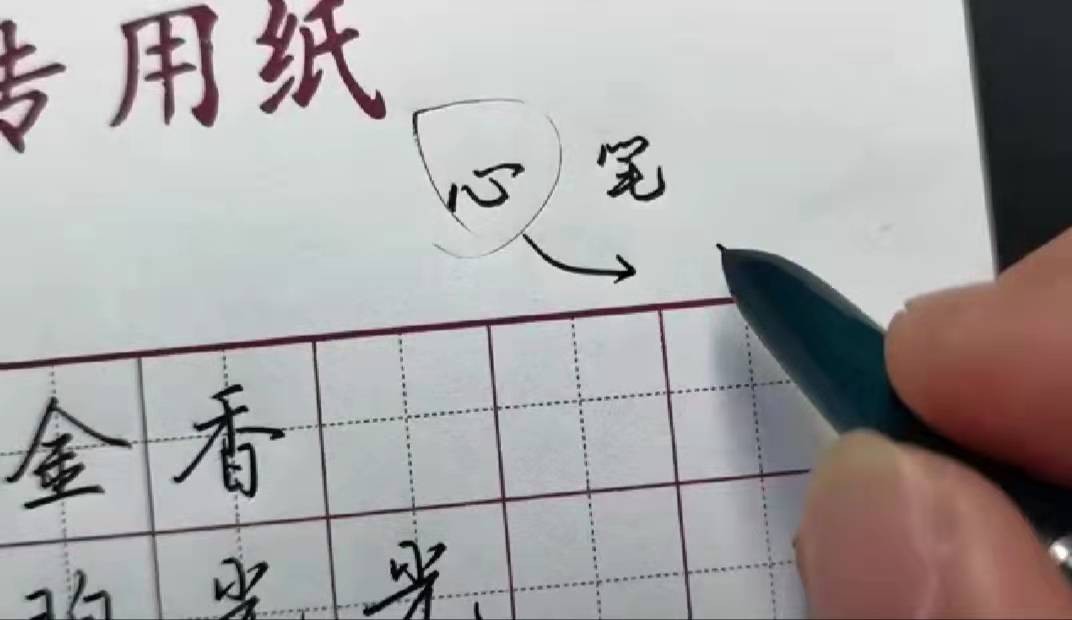 专用纸
心 笔
金香